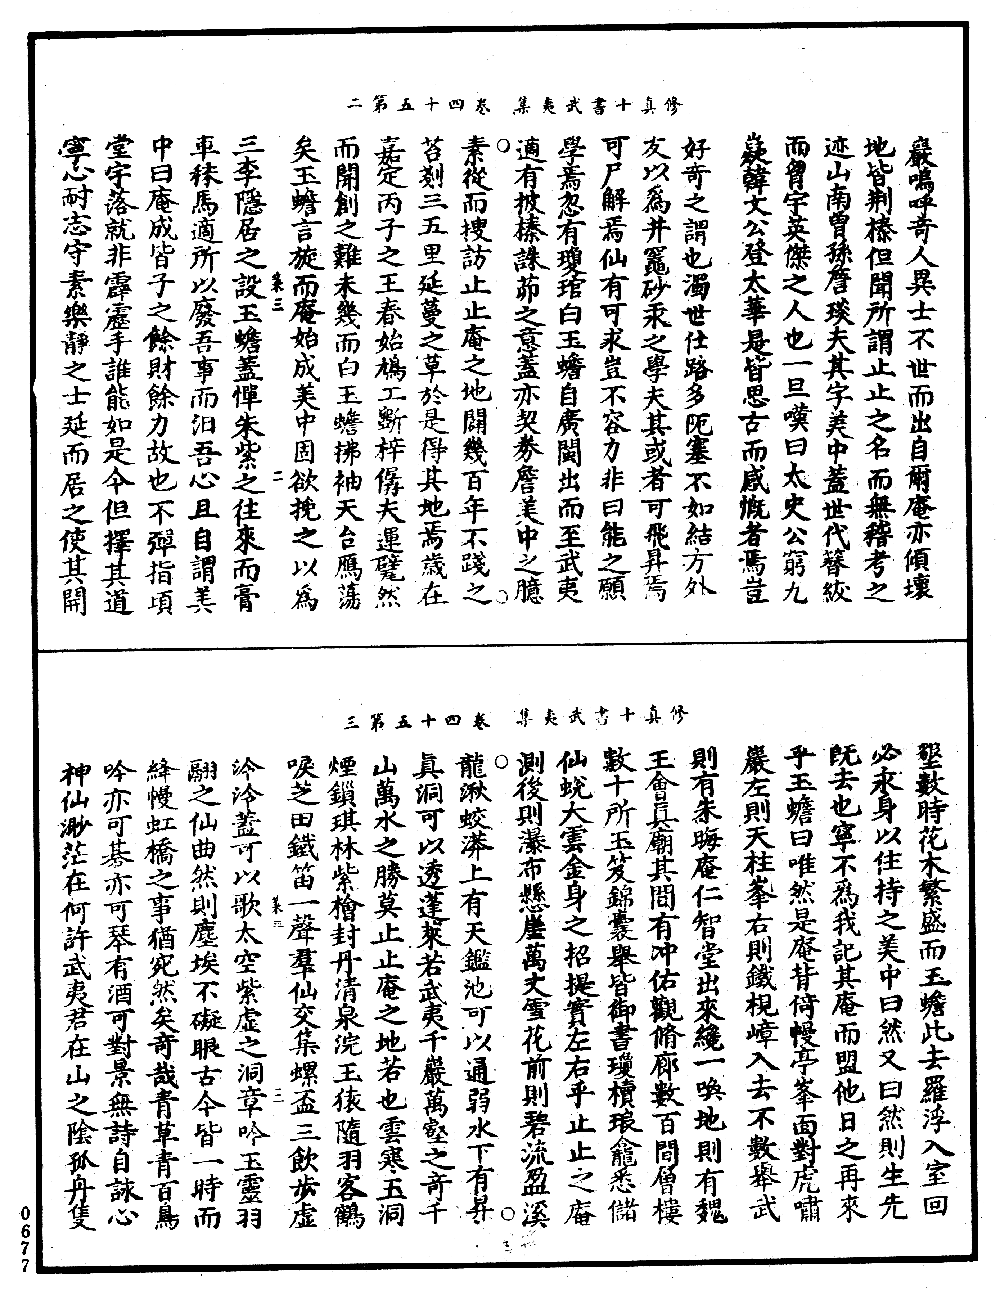 修真十書武夷集卷四十五第二
巖嗚呼奇人異士不世而出自爾庵亦傾壞
地皆荆榛但聞所謂止止之名而無稽考之
迹山南曾孫詹琰夫其字美中蓋世代簪紱
而胷宇英傑之人也一旦嘆曰太史公窮九
嶷韓文公登太華是皆思古而感慨者焉豈
好奇之謂也濁世仕路多阨塞不如結方外
友以爲井竈砂汞之學夫其或者可飛昇焉
可尸解焉仙有可求豈不容力非曰能之願
學焉忽有瓊琯白玉蟾自廣閩出而至武夷
適有披榛誅茆之意蓋亦契券詹美中之臆
素從而搜訪止止庵之地闢幾百年不踐之
苔剗三五里延蔓之草於是得其地焉歲在
嘉定丙子之王春始鳩工斲梓僝夫運甓然
而開創之難未幾而白玉蟾拂袖天台鴈蕩
矣玉蟾言旋而庵始成美中固欲挽之以爲
第三
二
三李隱居之設玉蟾蓋憚朱紫之往來而膏
車秣馬適所以廢吾事而汩吾心且自謂美
中曰庵成皆子之餘財餘力故也不彈指頃
堂宇落就非霹靂手誰能如是今但擇其道
寧心耐志守素樂靜之士延而居之使其開
修真十書武夷集卷四十五第三
墾數時花木繁盛而玉蟾此去羅浮入室回
必永身以住持之美中曰然又曰然則生先
既去也寧不爲我記其庵而盟他日之再來
乎玉蟾曰唯然是庵背倚幔亭峯面對虎嘯
巖左則天柱峯右則鐵板嶂入去不數舉武
則有朱晦庵仁智堂出來纔一喚地則有魏
王會真廟其間有冲佑觀脩廊數百間僧樓
數十所玉笈錦囊舉皆御書瓊櫝琅龕悉儲
仙蛻大雲金身之招提實左右乎止止之庵
測後則瀑布懸崖萬丈雪花前則碧流盈溪
龍湫蛟漭上有天鑑池可以通弱水下有昇
真洞可以透蓬萊若武夷千巖萬壑之奇千
山萬水之勝莫止止庵之地若也雲寒玉洞
煙鎖琪林紫檜封丹清泉浣玉猿隨羽客鶴
唳芝田鐵笛一聲羣仙交集螺盃三飲步虛
第三
三
泠泠蓋可以歌太空紫虛之洞章吟玉靈羽
翮之仙曲然則塵埃不礙眼古今皆一時而
絳幔虹橋之事猶宛然矣奇哉青草青百鳥
吟亦可棊亦可琴有酒可對景無詩自詠心
神仙渺茫在何許武夷君在山之陰孤舟隻
0677